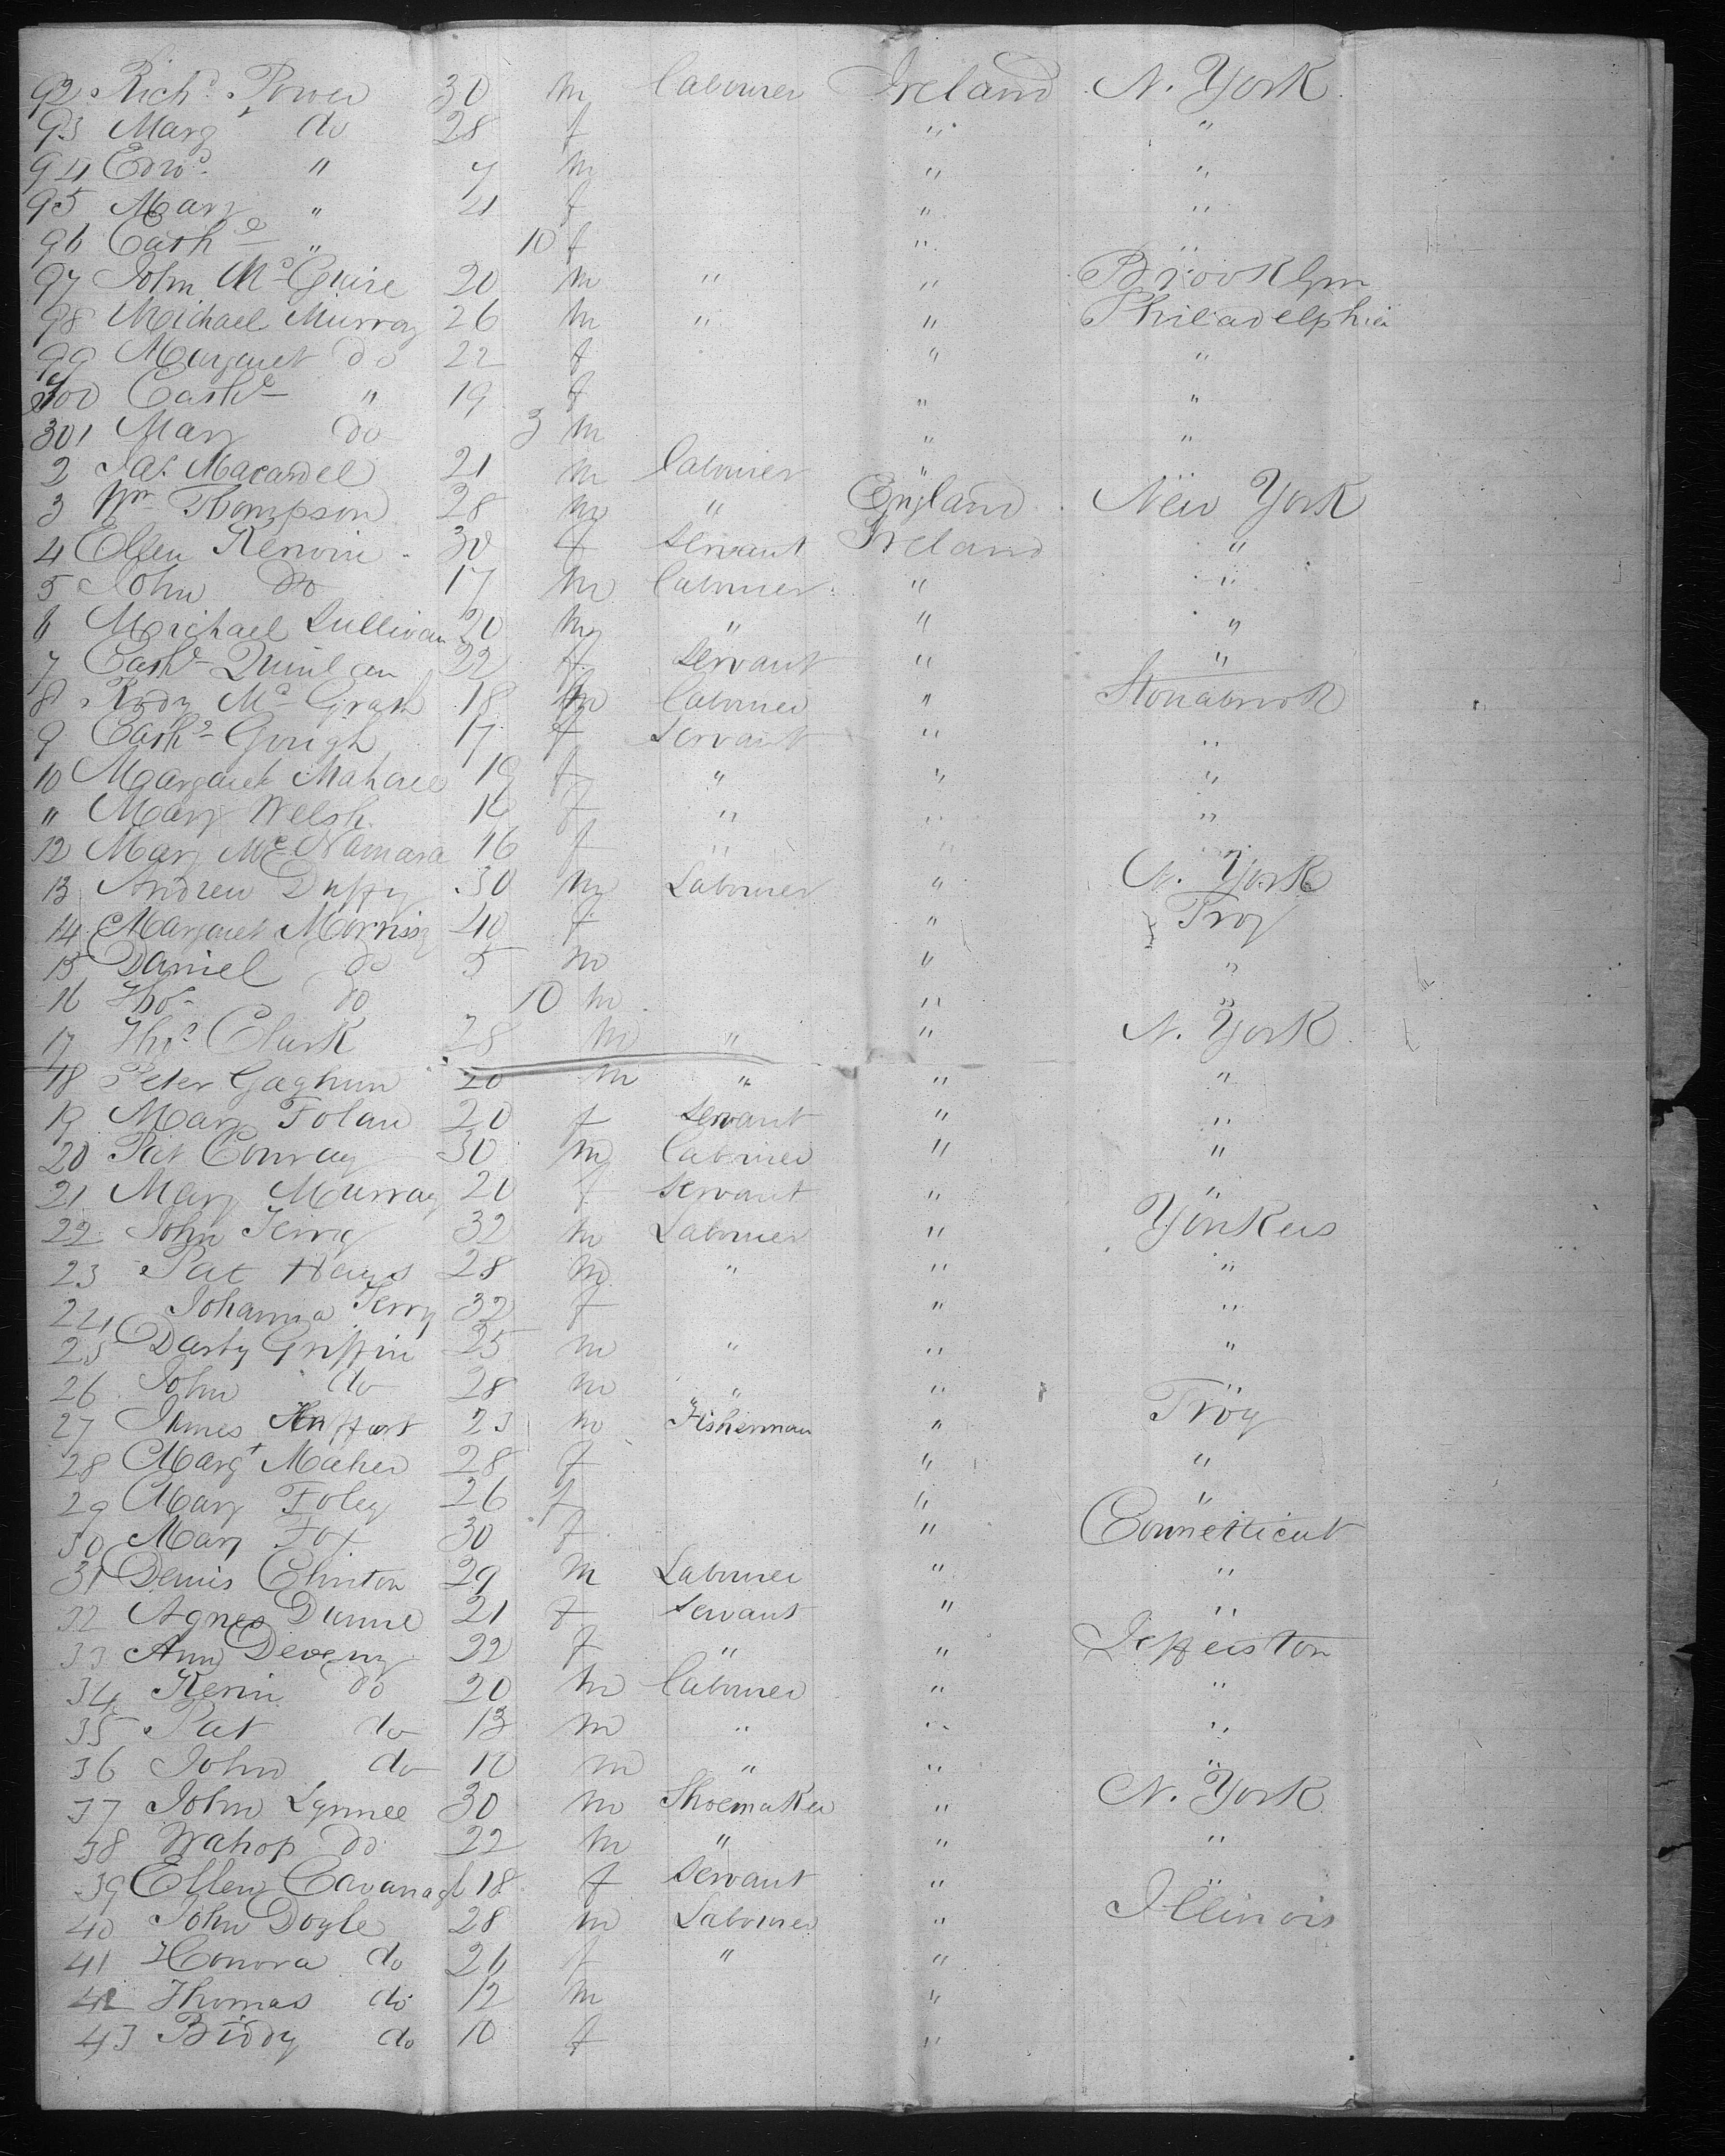 92 Richd. Power 30 m labourer Ireland N. York
93 Margt do 28 f " "
94 Edwd. " 7 m " "
95 Mary " 4 f " "
96 Cathe " 10 f " "
97 John McGuire 20 m " " Brooklyn
98 Michael Murray 26 m " " Philadelphia
99 Margaret do 22 f " "
300 Cathe " 19 f " "
301 Mary do 3 m " "
2 Jas. Macardel 21 m labourer "
3 Wm Thompson 28 m " England New York
4 Ellen Kerwin 30 f servant Ireland "
5 John do 17 m labourer " "
6 Michael Sullivan 20 m " " "
7 Cathe Quinlan 22 f servant " "
8 Rody McGrath 18 m labourer "
9 Cathe Gough 17 f servant " "
10 Margaret Maharee 19 f " " "
" Mary Welsh 16 f " " "
12 Mary McNamara 16 f " " "
13 Andrew Duffy 30 m Labourer " N. York
14 Margaret Morrissy 40 f " Troy
15 Daniel do 5 m " "
16 Thos do 10 m " "
17 Thos Clark 28 m " " N. York
18 Peter Gaghun 20 m " " "
19 Mary Folan 20 f servant " "
20 Pat Conray 30 m labourer " "
21 Mary Murray 20 f servant " "
22 John Terry 32 m Labourer " Yonkers
23 Pat Hays 28 m " " "
24 Johanna Terry 32 f " "
25 Darby Griffin 25 m " " "
26 John do 28 m " " "
27 James 23 m Fisherman " Troy
28 Margt Maher 28 f " "
29 Mary Foley 26 f " "
30 Mary Fox 30 f " Connetticut
31 Denis Clinton 29 m Labourer " "
32 Agnes Dunne 21 f servant " "
33 Ann Deveny 22 f " " Jefferston
34 Kerin do 20 m labourer " "
35 Pat do 13 m " " "
36 John do 10 m " " "
37 John Lynnee 30 m Shoemaker " N. York
38 Wahop do 22 m " " "
39 Ellen Cavanagh 18 f servant " "
40 John Doyle 28 m Labourer " Illinois
41 Honora do 26 f " "
42 Thomas do 12 m "
43 Biddy do 10 f "